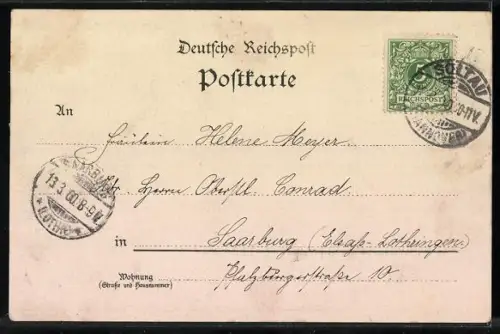 Deutsche Reichspost
Postkarte
5
REICHSPOST
SOLTAU
(HANNOVER)
An
Fräulein Helene Meyer
Adr. Herrn Oberstl. Conrad
SAARBURG
13.3.00.8-9V.
in Saarburg (Elsass-Lothringen)
Wohnung
(Straße und Hausnummer)
Pfalzburgerstraße 10.